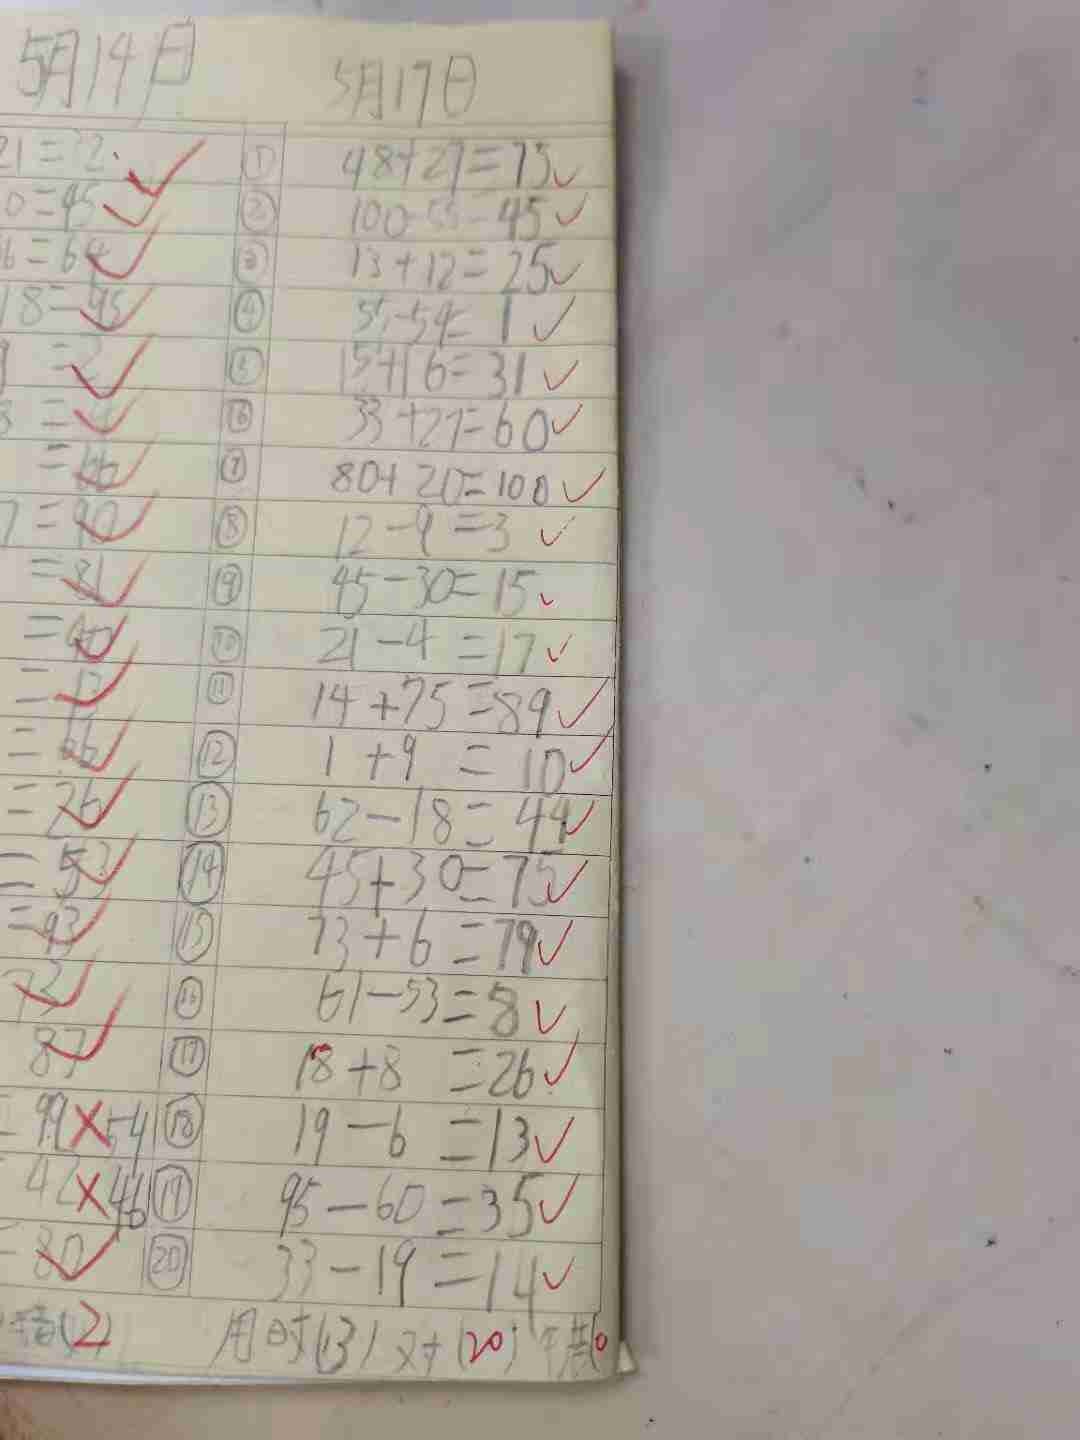 5月14日 5月17日
21=32 ① 48+27=75
0=45 ② 100-55=45
36=64 ③ 13+12=25
18=95 ④ 55-54=1
9=2 ⑤ 15+16=31
3= ⑥ 33+27=60
=66 ⑦ 80+20=100
7=90 ⑧ 12-9=3
=81 ⑨ 45-30=15
=40 ⑩ 21-4=17
=17 ⑪ 14+75=89
=66 ⑫ 1+9=10
=26 ⑬ 62-18=44
=53 ⑭ 45+30=75
=93 ⑮ 73+6=79
73 ⑯ 61-53=8
87 ⑰ 18+8=26
=99 54 ⑱ 19-6=13
=42 46 ⑲ 95-60=35
=80 ⑳ 33-19=14
错(2) 用时(3) 对(20) 错(0